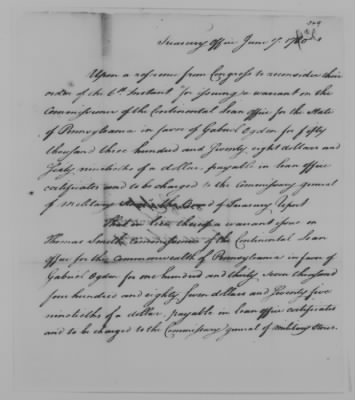 349
Treasury Office June 7. 1780
Upon a reference from Congress to reconsider their
order of the 6th. Instant for issuing a warrant on the
Commissioner of the Continental Loan office for the State
of Pennsylvania in favor of Gabriel Ogden for fifty
thousand three hundred and Seventy eight dollars and
Sixty ninetieths of a dollar, payable in loan office
certificates and to be charged to the Commissary general
of Military the Board of Treasury report
That in lieu thereof a warrant issue on
Thomas Smith Commissioner of the Continental Loan
Office for the Commonwealth of Pennsylvania in favor of
Gabriel Ogden for one hundred and thirty seven thousand
four hundred and eighty Seven dollars and Seventy five
ninetieths of a dollar, payable in loan office certificates
and to be charged to the Commissary general of Military Stores.